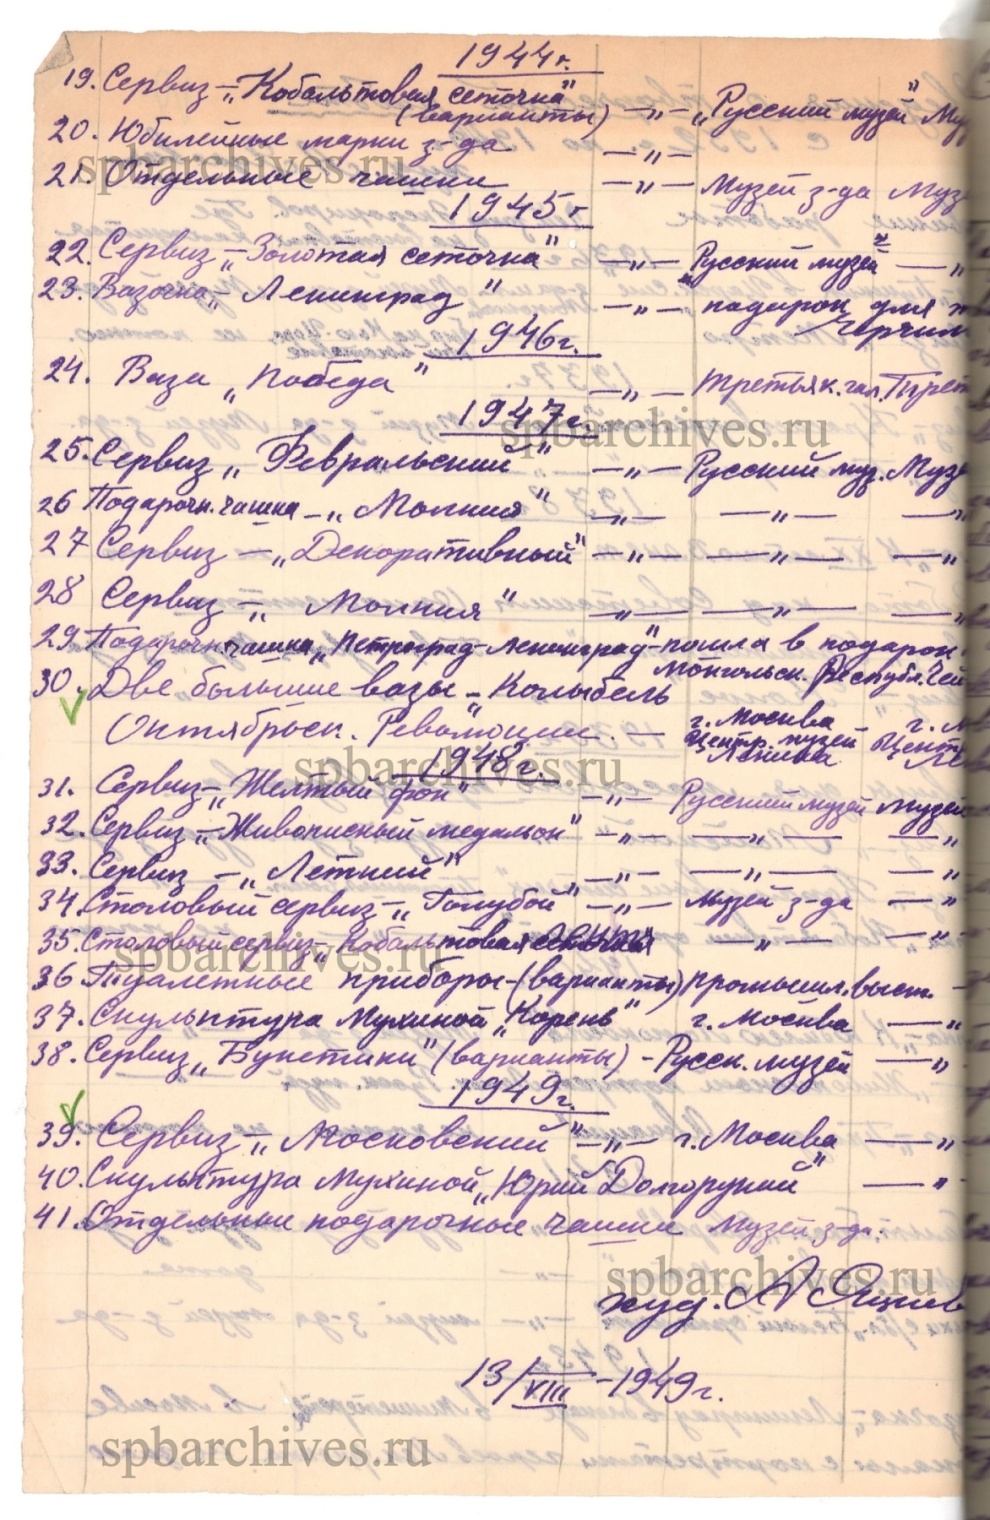 1944 г.
19. Сервиз – „Кобальтовая сеточка" – „ – „Русский музей"
(варианты)
20. Юбилейные марки з-да – „ –
21. Отдельные чашки – „ – Музей з-да
1945 г
22. Сервиз „Золотая сеточка" – „ – „Русский музей" – „
23. Вазочка – „Ленинград" – „ – подарок для
1946 г.
24. Ваза „Победа" – „ – Третьяк. гал.
1947 г.
25. Сервиз „Февральский" – „ – Русский муз.
26 Подарочн. чашка – „Молния" – „ – – „ – – „
27 Сервиз – „Декоративный" – „ – – „ – – „
28 Сервиз – „Молния" – „ – – „ – – „
29. Подарочн. чашка „Петроград-Ленинград" – пошла в подарок
Монгольск. Республ.
30. Две большие вазы – „Колыбель
Октябрьск. Революции. – г. Москва –
Центр. музей
Ленина
1948 г.
31. Сервиз – „Желтый фон" – „ – Русский музей Музей
32. Сервиз – „Живописный медальон" – „ – – „ – – „
33. Сервиз – „Летний" – „ – – „ – – „
34. Столовый сервиз – „Голубой" – „ – Музей з-да – „
35. Столовый сервиз – „Кобальтовая – „ – – „
36 Туалетные приборы – (варианты) промышл. выст. –
37. Скульптура Мухиной „Корень" г. Москва – „
38. Сервиз „Букетики" (варианты) – Русск. музей – „
1949 г.
39. Сервиз – „Московский" – „ – г. Москва – „
40. Скульптура Мухиной „Юрий Долгорукий" – „
41. Отдельные подарочные чашки Музей з-да.
худ.
13/VIII – 1949 г.
spbarchives.ru
spbarchives.ru
spbarchives.ru
spbarchives.ru
spbarchives.ru
spbarchives.ru